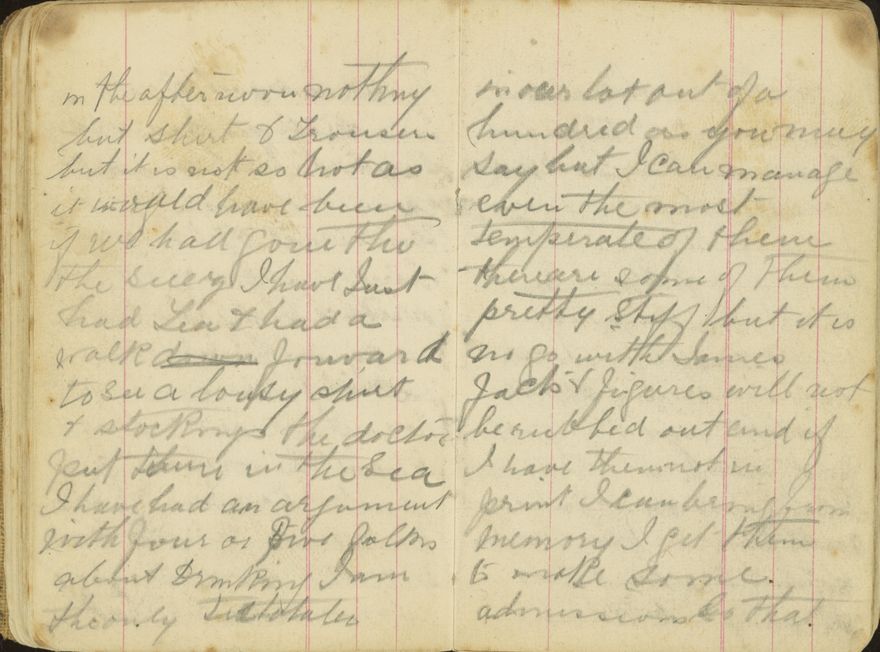 in the afternoon nothing
but shirt & Trousers
but it is not so hot as
it would have been
if we had gone thro
the Suez I have Just
had Tea & had a
walk down forward
to see a lousy shirt
& stockings the doctor
put them in the Sea
I have had an argument
with four or five folks
about Drinking I am
the only teetotaler
in our lot out of a
hundred as you may
say but I can manage
even the most
temperate of them
there are some of them
pretty stiff but it is
no go with James
Jack & figures will not
be rubbed out and if
I have them not in
print I can bring from
memory I get them
to make some
admissions that